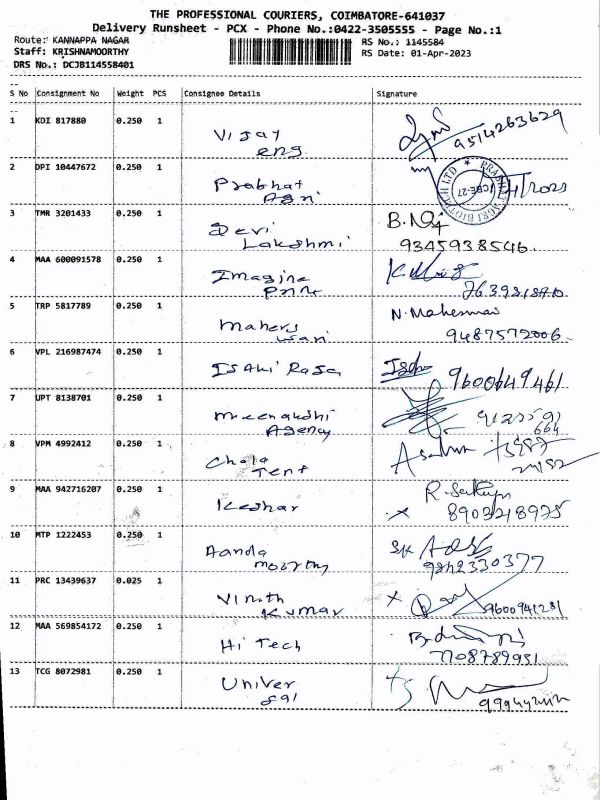 THE PROFESSIONAL COURIERS, COIMBATORE-641037
Delivery Runsheet - PCX - Phone No.:0422-3505555 - Page No.:1
Route: KANNAPPA NAGAR
RS No.: 1145584
Staff: KRISHNAMOORTHY
RS Date: 01-Apr-2023
DRS No.: DCJB114558401
S No Consignment No Weight PCS Consignee Details Signature
1 KDI 817880 0.250 1
Vijay
eng
9514263629
2 DPI 10447672 0.250 1
Prabhat
Agri
3 TMR 3201433 0.250 1
Devi
Lakshmi
9345938546
4 MAA 600091578 0.250 1
Imagine
5 TRP 5817789 0.250 1
Mahes
wari
N. Maheswari
9487572006
6 VPL 216987474 0.250 1
Isaki Raja
9600649461
7 UPT 8138701 0.250 1
Meenakshi
Agency
8 VPM 4992412 0.250 1
Chola
Tent
9 MAA 942716207 0.250 1
Keshar
8903218975
10 MTP 1222453 0.250 1
Aanda
moorthy
9842330377
11 PRC 13439637 0.025 1
Vinoth
Kumar
9600941281
12 MAA 569854172 0.250 1
Hi Tech
7708789951
13 TCG 8072981 0.250 1
Univer
sal